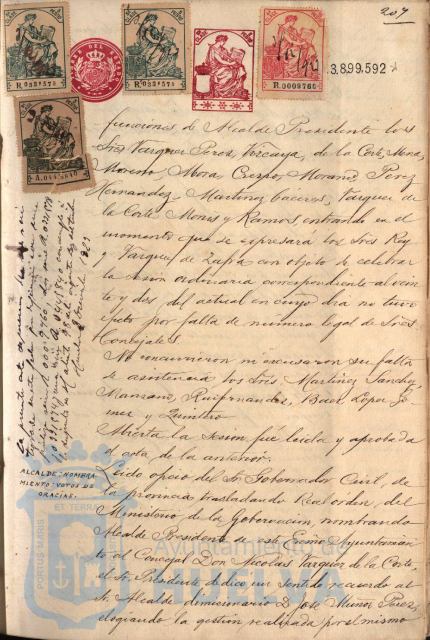 207
3.899.592
R.0009766
funciones de Alcalde Presidente los
Sres Vazquez Perez, Vizcaya, de la Corte, Mena,
Moreno, Mora Crespo, Morano Perez
Hernandez, Martinez Caceres, Vazquez de
la Corte Mones y Ramos, entrando en el
momento que se expresará los Sres Rey
y Vazquez de Zafra con objeto de celebrar
la sesion ordinaria correspondiente al vein
te y dos del actual en cuyo dia no tuvo
efecto por falta de número legal de Sres
Concejales.
No concurrieron ni escusaron su falta
de asistencia los Sres. Martinez Sanchez,
Manzano, Ruifernandez, Baez, Lopez Go
mez y Quintero
Abierta la sesion fué leida y aprobada
el acta de la anterior.
ALCALDE: NOMBRA-
MIENTO: VOTOS DE
GRACIAS:
Leido oficio del Sr Gobernador Civil, de
la provincia trasladando Real orden, del
Ministerio de la Gobernacion, nombrando
Alcalde Presidente de este Excmo Ayuntamien
to al Concejal Don Nicolas Vazquez de la Corte,
el Sr. Presidente dedicó un sentido recuerdo al
Sr. Alcalde dimisionario D. José Muñoz Perez,
elogiando la gestión realizada por el mismo
PORTUS MARIS ET TERRAE
Ayuntamiento de
HUELVA